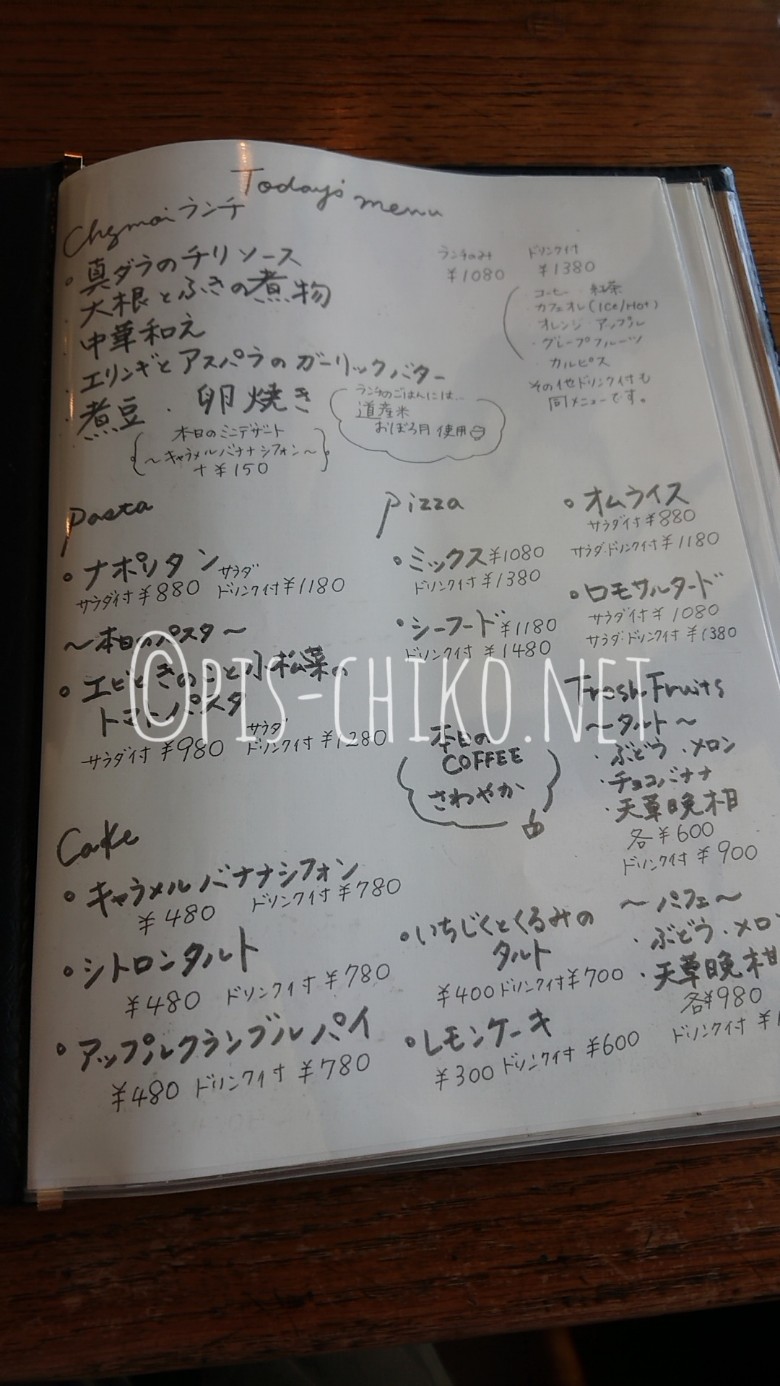 Today's menu
Chezmoi ランチ
・真ダラのチリソース
大根とふきの煮物
中華和え
・エリンギとアスパラのガーリックバター
・煮豆 ・卵焼き
本日のミニデザート
～キャラメルバナナシフォン～
+¥150
ランチのごはんには…
道産米
おぼろ月 使用
ランチのみ ドリンク付
¥1080 ¥1380
コーヒー 紅茶
カフェオレ(Ice/Hot)
オレンジ アップル
・グレープフルーツ
・カルピス
その他ドリンク付も
同メニューです。
Pasta
・ナポリタン
サラダ付¥880 サラダドリンク付¥1180
～本日のパスタ～
・エビときのこと小松菜の
トマトパスタ
サラダ付¥980 サラダドリンク付¥1280
Pizza
・ミックス¥1080
ドリンク付¥1380
・シーフード¥1180
ドリンク付¥1480
・オムライス
サラダ付¥880
サラダ・ドリンク付¥1180
・ロモサルタード
サラダ付¥1080
サラダ・ドリンク付¥1380
©PIS-CHIKO.NET
本日の
COFFEE
さわやか
Fresh Fruits
～タルト～
・ぶどう・メロン
・チョコバナナ
・天草晩柑
各¥600
ドリンク付¥900
～パフェ～
・ぶどう・メロ
・天草晩柑
各¥980
ドリンク付¥1
Cake
・キャラメルバナナシフォン
¥480 ドリンク付¥780
・シトロンタルト
¥480 ドリンク付¥780
・アップルクランブルパイ
¥480 ドリンク付¥780
・いちじくとくるみの
タルト
¥400ドリンク付¥700
・レモンケーキ
¥300ドリンク付¥600